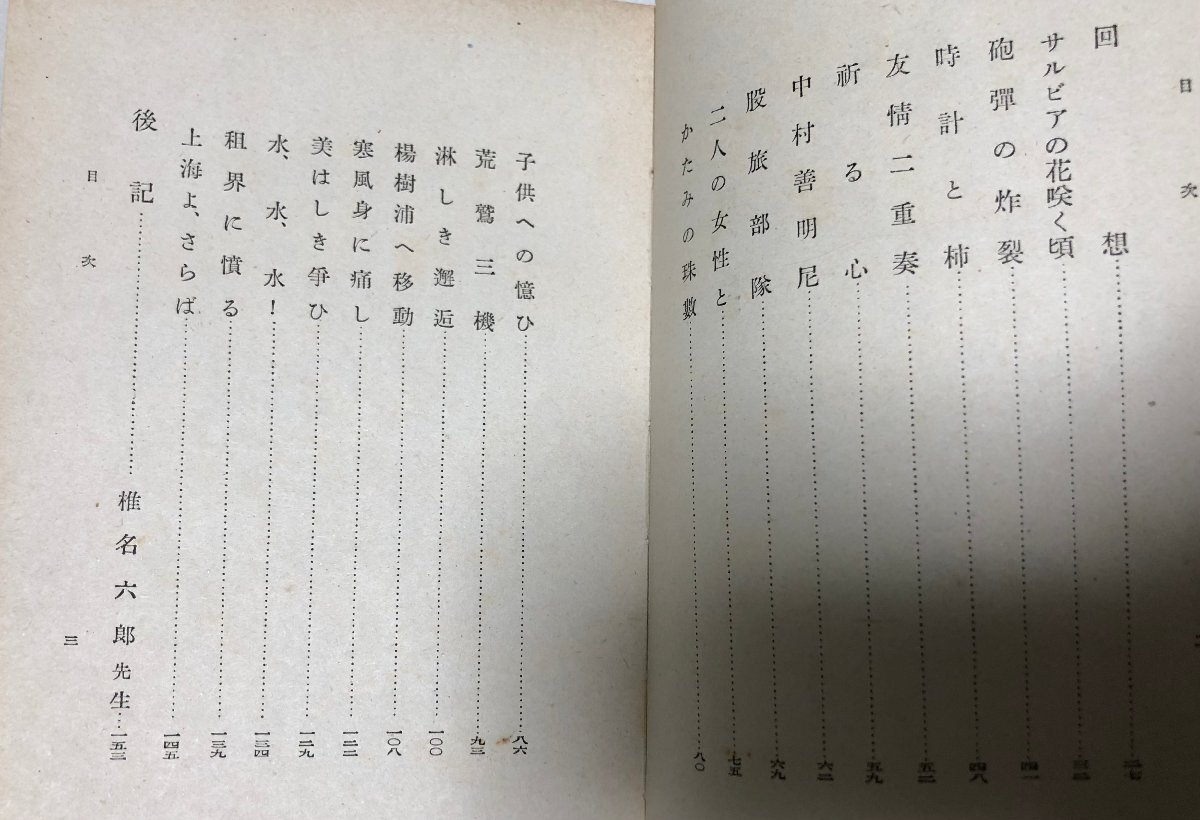 目次
回想…二七
サルビアの花咲く頃…三三
砲彈の炸裂…四一
時計と柿…四八
友情二重奏…五二
祈る心…五九
中村善明尼…六二
股旅部隊…六九
二人の女性と…七五
かたみの珠數…八〇
子供への憶ひ…八六
荒鷲三機…九三
淋しき邂逅…一〇〇
楊樹浦へ移動…一〇八
寒風身に痛し…一二二
美はしき爭ひ…一二九
水、水、水！…一三四
租界に憤る…一三九
上海よ、さらば…一四五
後記…椎名六郎先生…一五三
目次
三